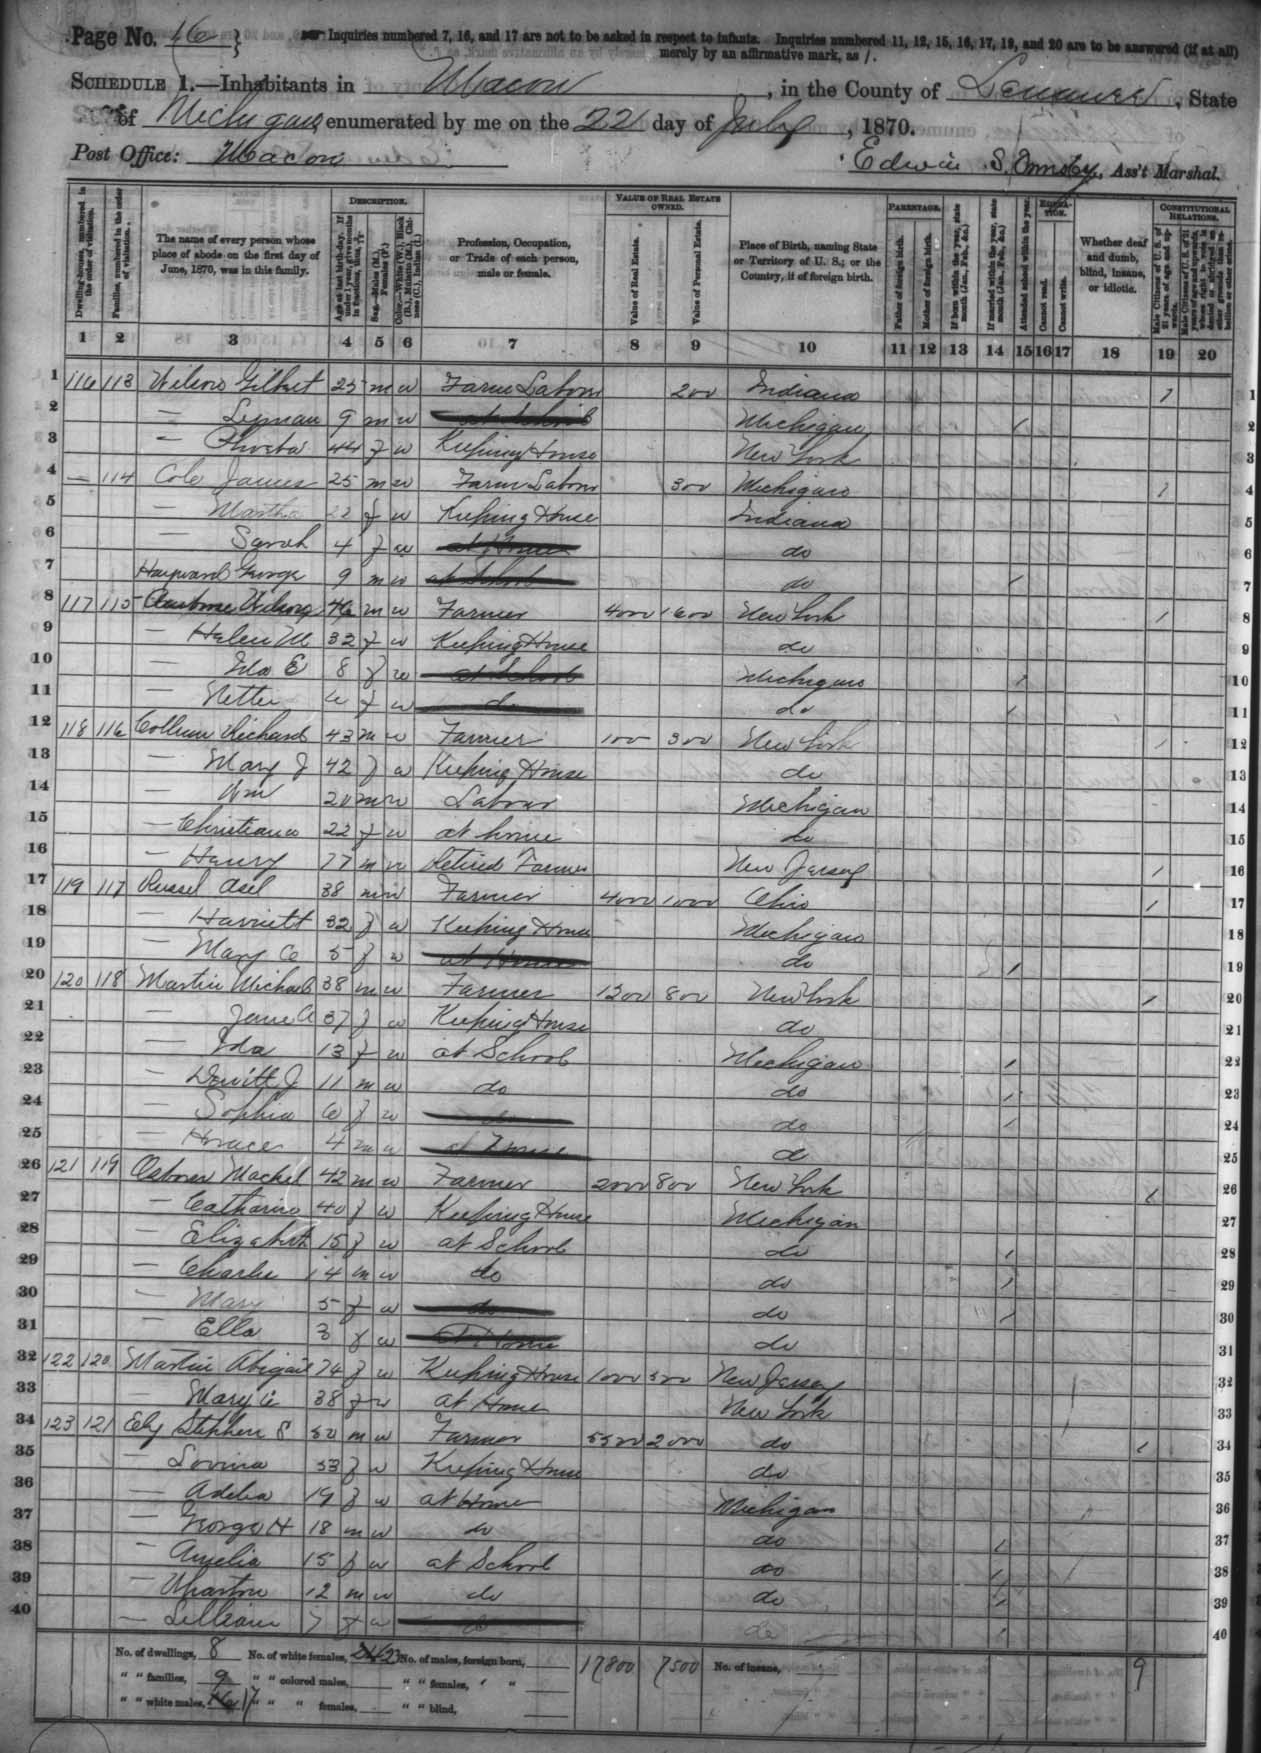 Page No. 16
Inquiries numbered 7, 16, and 17 are not to be asked in respect to infants. Inquiries numbered 11, 12, 15, 16, 17, 19, and 20 are to be answered (if at all)
merely by an affirmative mark, as /.
SCHEDULE 1.—Inhabitants in Macon, in the County of Lenawee, State
of Michigan, enumerated by me on the 22 day of July, 1870.
Post Office: Macon
Edwin S. Ormsby, Ass't Marshal.
DESCRIPTION. VALUE OF REAL ESTATE OWNED. PARENTAGE. EDUCATION. CONSTITUTIONAL RELATIONS.
Dwelling-houses, numbered in the order of visitation.
Families, numbered in the order of visitation.
The name of every person whose place of abode on the first day of June, 1870, was in this family.
Age at last birth-day. If under 1 year, give months in fractions, thus, 
Sex.—Males (M.), Females (F.)
Color.—White (W.), Black (B.), Mulatto (M.), Chinese (C.), Indian (I.)
Profession, Occupation, or Trade of each person, male or female.
Value of Real Estate.
Value of Personal Estate.
Place of Birth, naming State or Territory of U. S.; or the Country, if of foreign birth.
Father of foreign birth.
Mother of foreign birth.
If born within the year, state month (Jan., Feb., &c.)
If married within the year, state month (Jan., Feb., &c.)
Attended school within the year.
Cannot read.
Cannot write.
Whether deaf and dumb, blind, insane, or idiotic.
1 2 3 4 5 6 7 8 9 10 11 12 13 14 15 16 17 18 19 20
1 116 113 Wilson Gilbert 25 m w Farm Labour 200 Indiana / 1
2 — Lyman 9 m w at School Michigan / 2
3 — 44 f w Keeping House New York 3
4 — 114 Cole James 25 m w Farm Labour 300 Michigan / 4
5 — Martha 22 f w Keeping House Indiana 5
6 — Sarah 4 f w at Home do 6
7 Hayward George 9 m w at School do / 7
8 117 115 46 m w Farmer 4000 1600 New York / 8
9 — Helen M 32 f w Keeping House do 9
10 — Ida E 8 f w at School Michigan / 10
11 — Nettie 6 f w do do / 11
12 118 116 Collum Richard 43 m w Farmer 100 300 New York / 12
13 — Mary J 42 f w Keeping House do 13
14 — Wm 20 m w Labour Michigan 14
15 — Christiana 22 f w at home do 15
16 — Henry 77 m w Retired Farmer New Jersey / 16
17 119 117 Russel Asel 38 m w Farmer 4000 1000 Ohio / 17
18 — Harriett 32 f w Keeping House Michigan 18
19 — Mary C 5 f w at Home do / 19
20 120 118 Martin Michael 38 m w Farmer 1200 800 New York / 20
21 — Jane A 37 f w Keeping House do 21
22 — Ida 13 f w at School Michigan / 22
23 — Dewitt J 11 m w do do / 23
24 — Sophia 6 f w do do / 24
25 — Horace 4 m w at Home do 25
26 121 119 Osborn 42 m w Farmer 2000 800 New York / 26
27 — Catharine 40 f w Keeping House Michigan 27
28 — Elizabeth 15 f w at School do / 28
29 — Charlie 14 m w do do / 29
30 — Mary 5 f w do do / 30
31 — Ella 3 f w at Home do 31
32 122 120 Martin Abigail 74 f w Keeping House 1000 500 New Jersey 32
33 — Mary 38 f w at Home New York 33
34 123 121 Ely Stephen S 50 m w Farmer 5500 2000 do / 34
35 — Lovina 53 f w Keeping House do 35
36 — Adelia 19 f w at Home Michigan 36
37 — George H 18 m w do do / 37
38 — Amelia 15 f w at School do / 38
39 — Wharton 12 m w do do / 39
40 — Lillian 7 f w do do / 40
No. of dwellings, 8 No. of white females, 23 No. of males, foreign born, 17800 7500 No. of insane, 9
" " families, 9 " " colored males, " " females, " "
" " white males, 16 17 " " " females, " " blind,